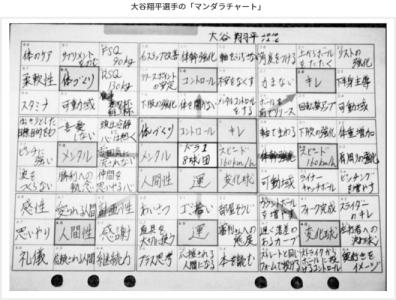 大谷翔平選手の「マンダラチャート」
大谷 翔平
体のケア サプリメントをのむ FSQ 90kg インステップ改善 体幹強化 軸をぶらさない 角度をつける 上からボールをたたく リストの強化
柔軟性 体づくり RSQ 130kg リリースポイントの安定 コントロール 不安をなくす 力まない キレ 下半身主導
スタミナ 可動域 下肢の強化 体を開かない メンタルコントロールをする ボールを前でリリース 回転数アップ 可動域
はっきりとした目標、目的をもつ 一喜一憂しない 頭は冷静に心は熱く 体づくり コントロール キレ 軸でまわる 下肢の強化 体重増加
ピンチに強い メンタル 雰囲気に流されない メンタル ドラ1 8球団 スピード160km/h 体幹強化 スピード160km/h 肩周りの強化
波をつくらない 勝利への執念 仲間を思いやる心 人間性 運 変化球 可動域 ライナーキャッチボール ピッチングを増やす
感性 愛される人間 計画性 あいさつ ゴミ拾い 部屋そうじ カウントボールを増やす フォーク完成 スライダーのキレ
思いやり 人間性 感謝 道具を大切に使う 運 審判さんへの態度 遅く落差のあるカーブ 変化球 左打者への決め球
礼儀 信頼される人間 継続力 プラス思考 応援される人間になる 本を読む ストレートと同じフォームで投げる ストライクからボールに投げるコントロール 奥行きをイメージ